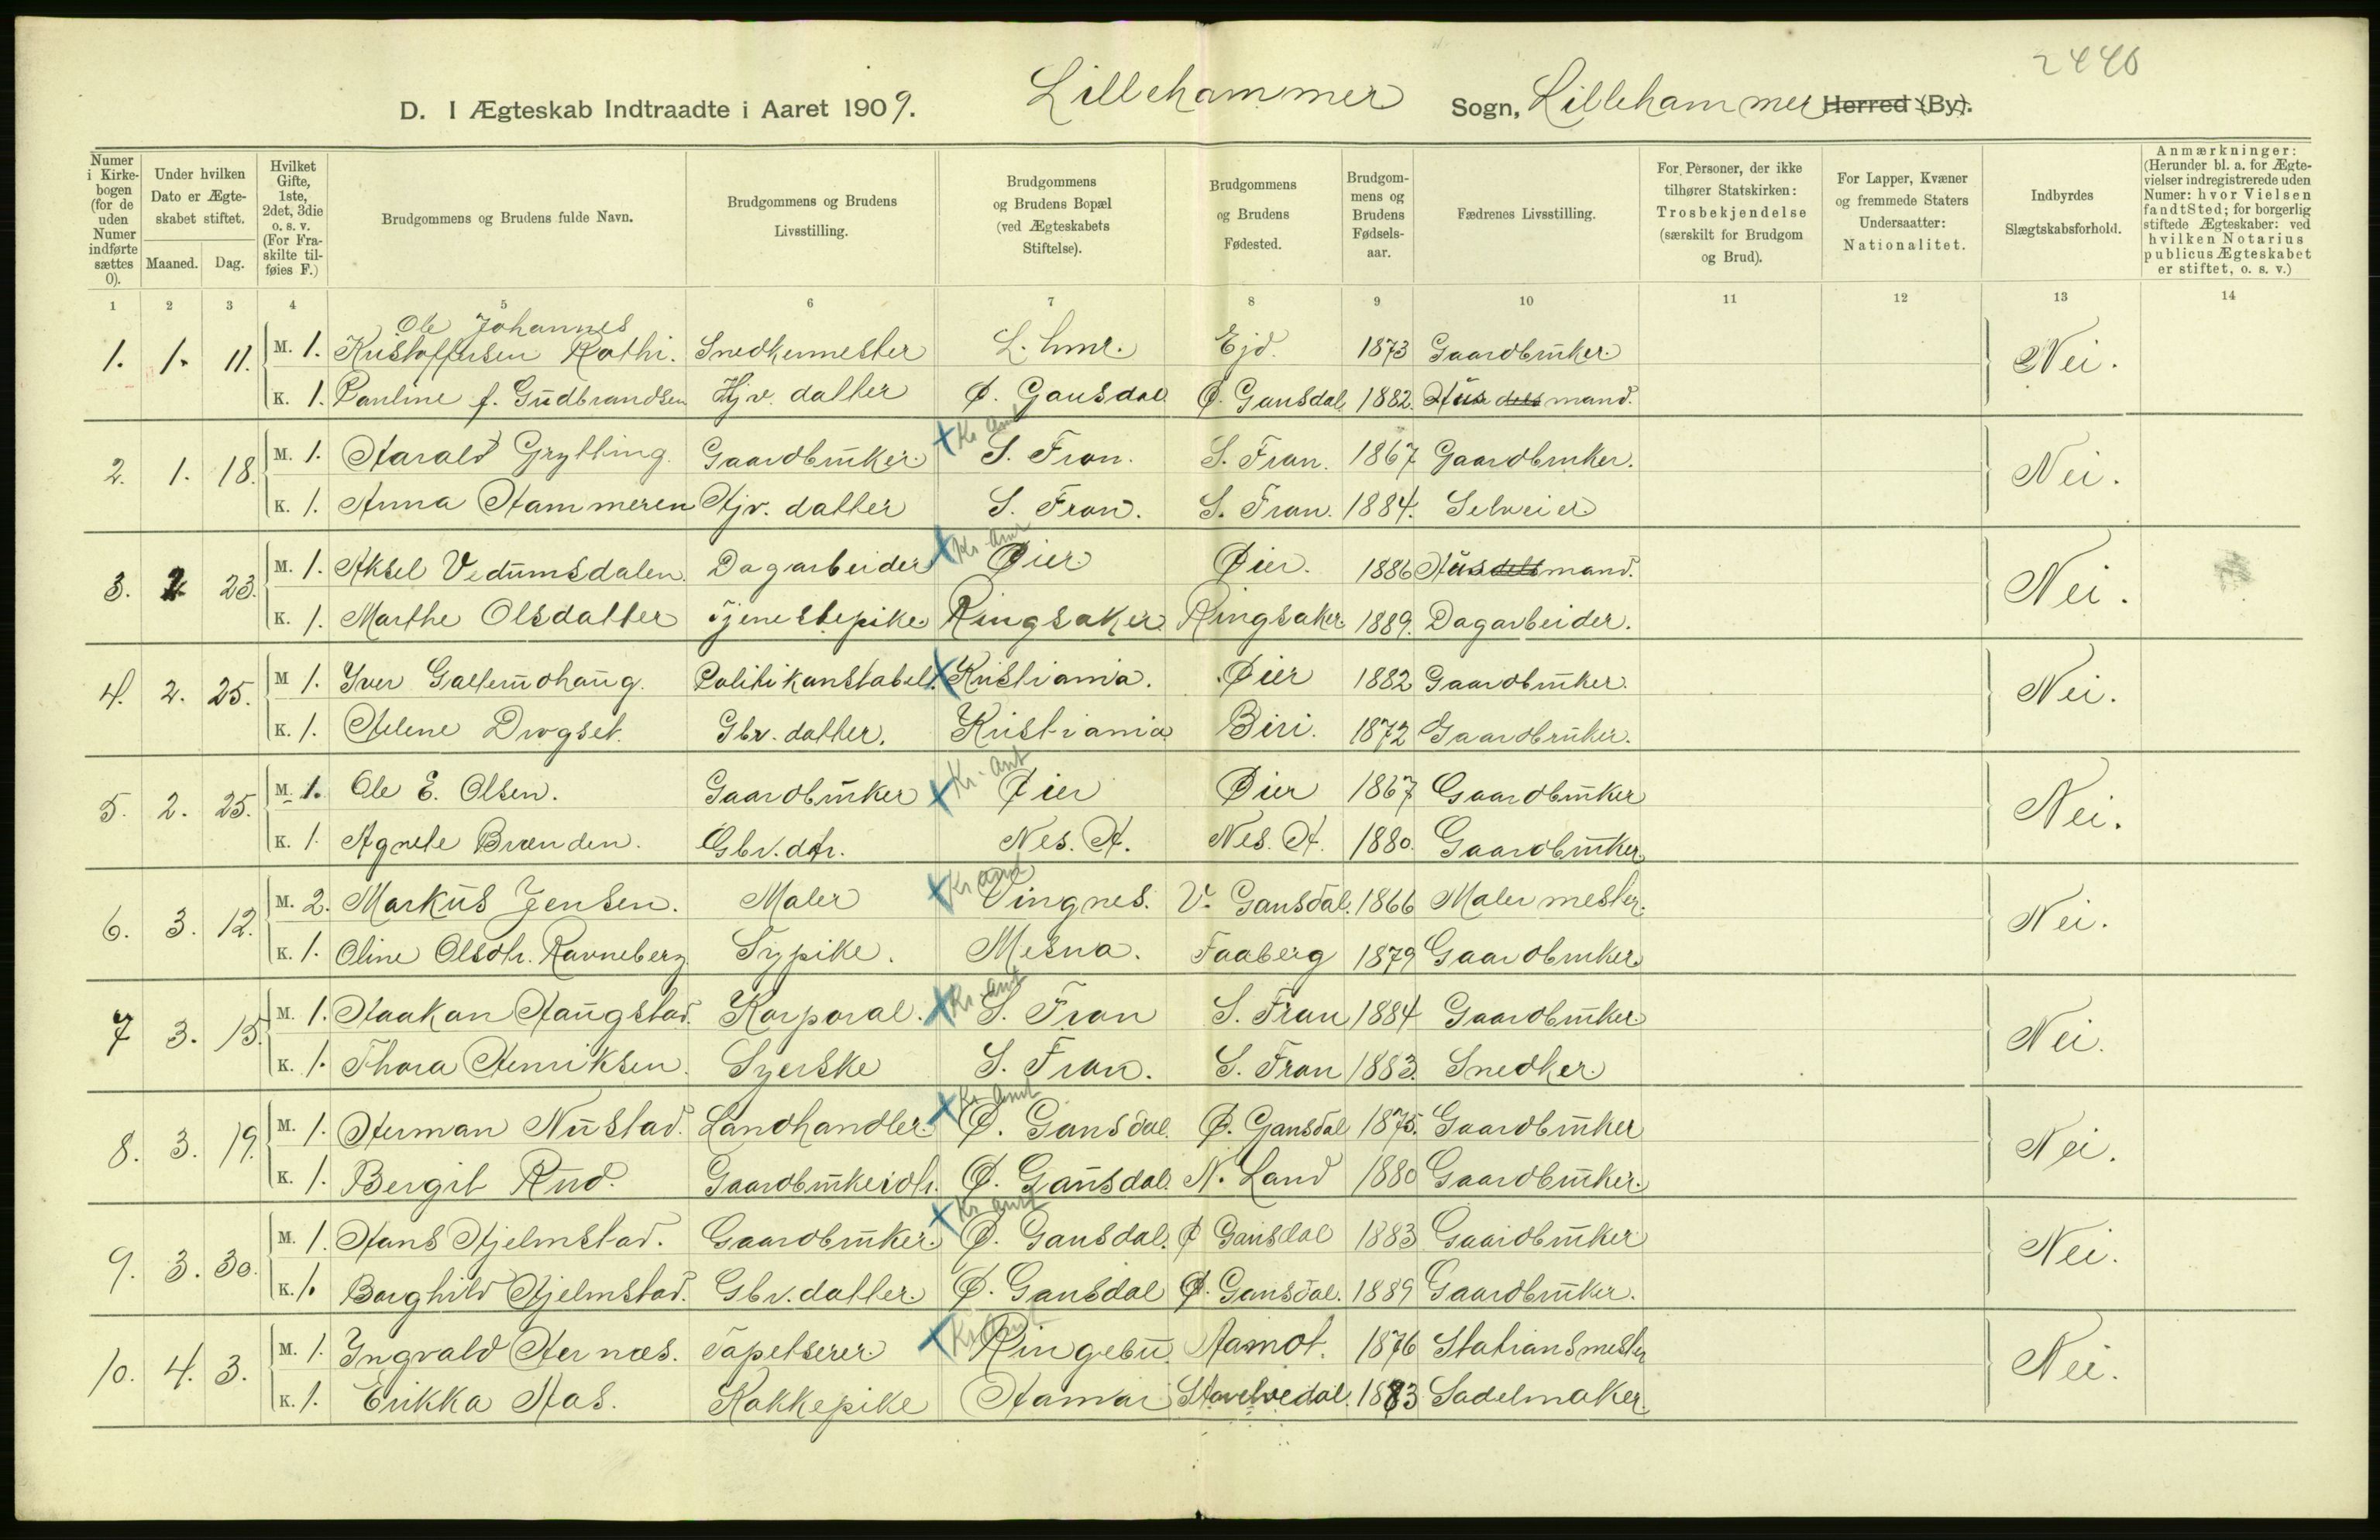 2440
D. I Ægteskab Indtraadte i Aaret 1909. Lillehammer Sogn, Lillehammer Herred (By).
Numer i Kirkebogen (for de uden Numer indførte sættes 0).
Under hvilken Dato er Ægteskabet stiftet.
Maaned. Dag.
Hvilket Gifte, 1ste, 2det, 3die o. s. v. (For Fraskilte tilføies F.)
Brudgommens og Brudens fulde Navn.
Brudgommens og Brudens Livsstilling.
Brudgommens og Brudens Bopæl (ved Ægteskabets Stiftelse).
Brudgommens og Brudens Fødested.
Brudgommens og Brudens Fødselsaar.
Fædrenes Livsstilling.
For Personer, der ikke tilhører Statskirken: Trosbekjendelse (særskilt for Brudgom og Brud).
For Lapper, Kvæner og fremmede Staters Undersaatter: Nationalitet.
Indbyrdes Slægtskabsforhold.
Anmærkninger: (Herunder bl. a. for Ægtevielser indregistrerede uden Numer: hvor Vielsen fandt Sted; for borgerlig stiftede Ægteskaber: ved hvilken Notarius publicus Ægteskabet er stiftet, o. s. v.)
1 2 3 4 5 6 7 8 9 10 11 12 13 14
Ole Johannes
1. 1. 11. M. 1. Kristoffersen Rothi. Snedkermester L.hmr. Ejd. 1873 Gaardbruker. Nei.
K. 1. Pauline f. Gudbrandsen Hjv. datter Ø. Gausdal Ø. Gausdal. 1882. Husdelsmand.
Kr. Amt
2. 1. 18. M. 1. Harald Grytting. Gaardbruker. S. Fron. S. Fron. 1867 Gaardbruker. Nei.
K. 1. Anna Hammeren Hjv. datter S. Fron. S. Fron. 1884. Selveier
Kr. Amt
3. 2. 23. M. 1. Aksel Vedumsdalen. Dagarbeider Øier Øier. 1886 Husdelsmand. Nei.
K. 1. Marthe Olsdatter Tjenestepike Ringsaker Ringsaker 1889. Dagarbeider.
4. 2. 25. M 1. Iver Galterudhaug. Politikonstabel. Kristiania. Øier 1882 Gaardbruker. Nei.
K. 1. Helene Drogset. Gbr. datter. Kristiania Biri. 1872 Gaardbruker.
Kr. Amt
5. 2. 25. M. 1. Ole E. Olsen. Gaardbruker Øier Øier 1867 Gaardbruker Nei.
K. 1. Agnete Brænden. Gbr. dtr. Nes. H. Nes. H. 1880. Gaardbruker
Kr Amt
6. 3. 12. M. 2. Markus Jensen. Maler Vingnes. V. Gausdal. 1866 Malermester. Nei.
K. 1. Oline Olsdtr. Ravneberg. Sypike. Mesna. Faaberg 1879 Gaardbruker
Kr. Amt
7 3. 15. M. 1. Haakon Haugstad. Korporal. S. Fron S. Fron 1884 Gaardbruker. Nei.
K. 1. Thora Henriksen. Syerske S. Fron. S. Fron 1883. Snedker.
Kr. Amt
8. 3. 19. M. 1. Herman Nustad. Landhandler. Ø. Gausdal. Ø. Gausdal 1875. Gaardbruker Nei.
K. 1. Bergit Rud. Gaardbrukerdtr. Ø. Gausdal. N. Land 1880 Gaardbruker.
Kr. Amt
9. 3. 30. M. 1. Hans Hjelmstad. Gaardbruker. Ø. Gausdal. Ø Gausdal 1883 Gaardbruker Nei.
K. 1. Borghild Hjelmstad. Gbr. datter. Ø. Gausdal Ø. Gausdal. 1889 Gaardbruker.
Kr. Amt
10. 4. 3. M. 1. Ingvald Hernæs. Tapetserer. Ringebu. Aamot. 1876 Stationsmester Nei.
K. 1. Erikka Aas. Kokkepike Hamar 1883 Sadelmaker.